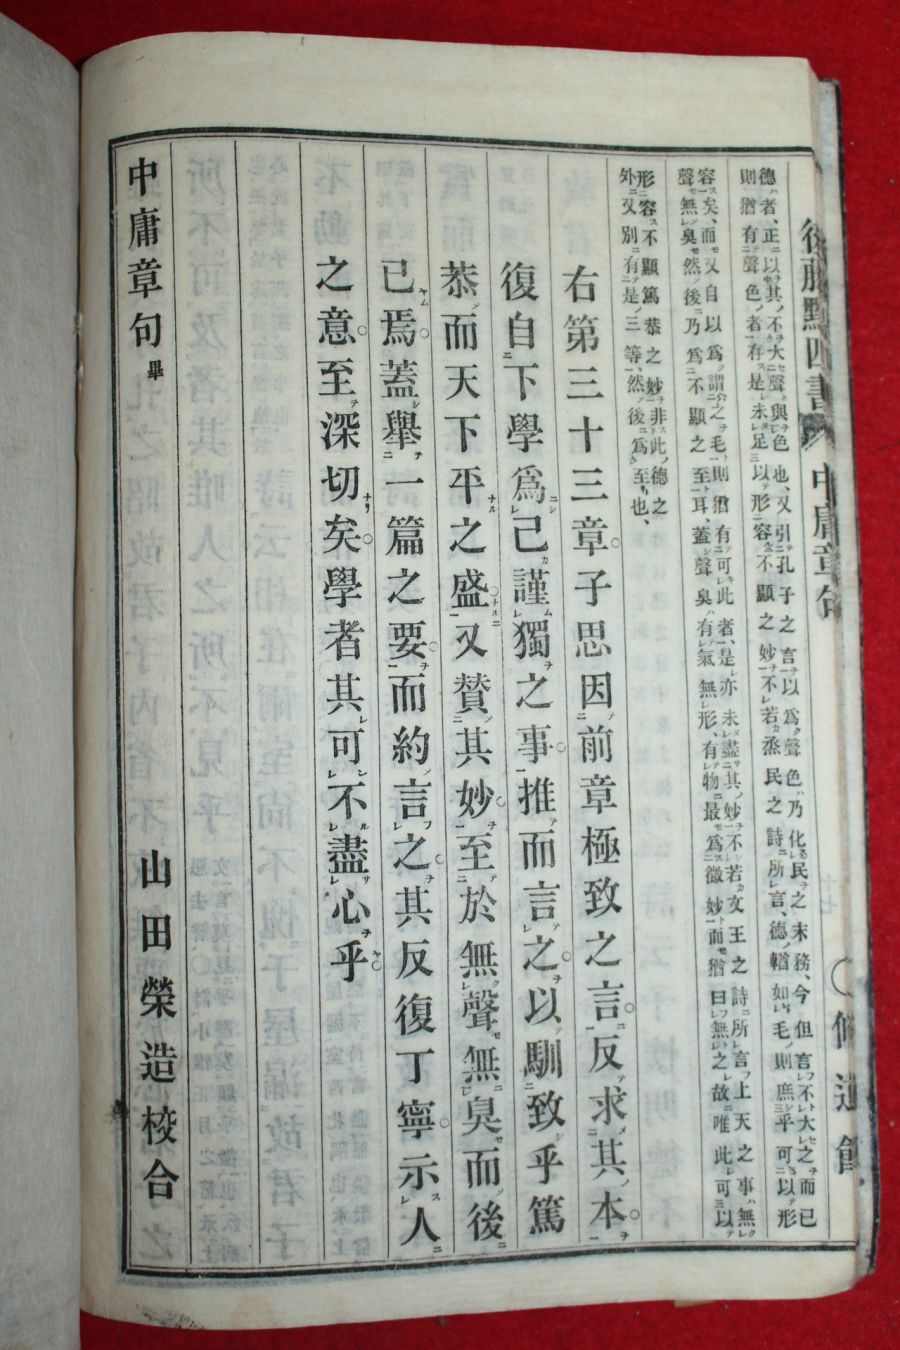 後藤點四書 中庸章句 〇脩道館
德者、正以其不大聲與色也、又引孔子之言以爲聲色乃化民之末務、今但言不大之而已
則猶有聲色者存是未足以形容不顯之妙不若烝民之詩所言、德輶如毛則庶乎可以形
容矣、而又自以爲謂之毛則猶有可比者、是亦未盡其妙不若文王之詩所言上天之事無
聲無臭然後乃爲不顯之至耳、蓋聲臭有氣無形、在物最爲微妙而猶曰無之故唯此可以
形容不顯篤恭之妙非此德之
外又別有是三等、然後爲至也、
右第三十三章子思因前章極致之言反求其本
復自下學爲己謹獨之事推而言之以馴致乎篤
恭而天下平之盛又贊其妙至於無聲無臭而後
已焉蓋擧一篇之要而約言之其反復丁寧示人
之意至深切矣學者其可不盡心乎
中庸章句畢
山田榮造校合